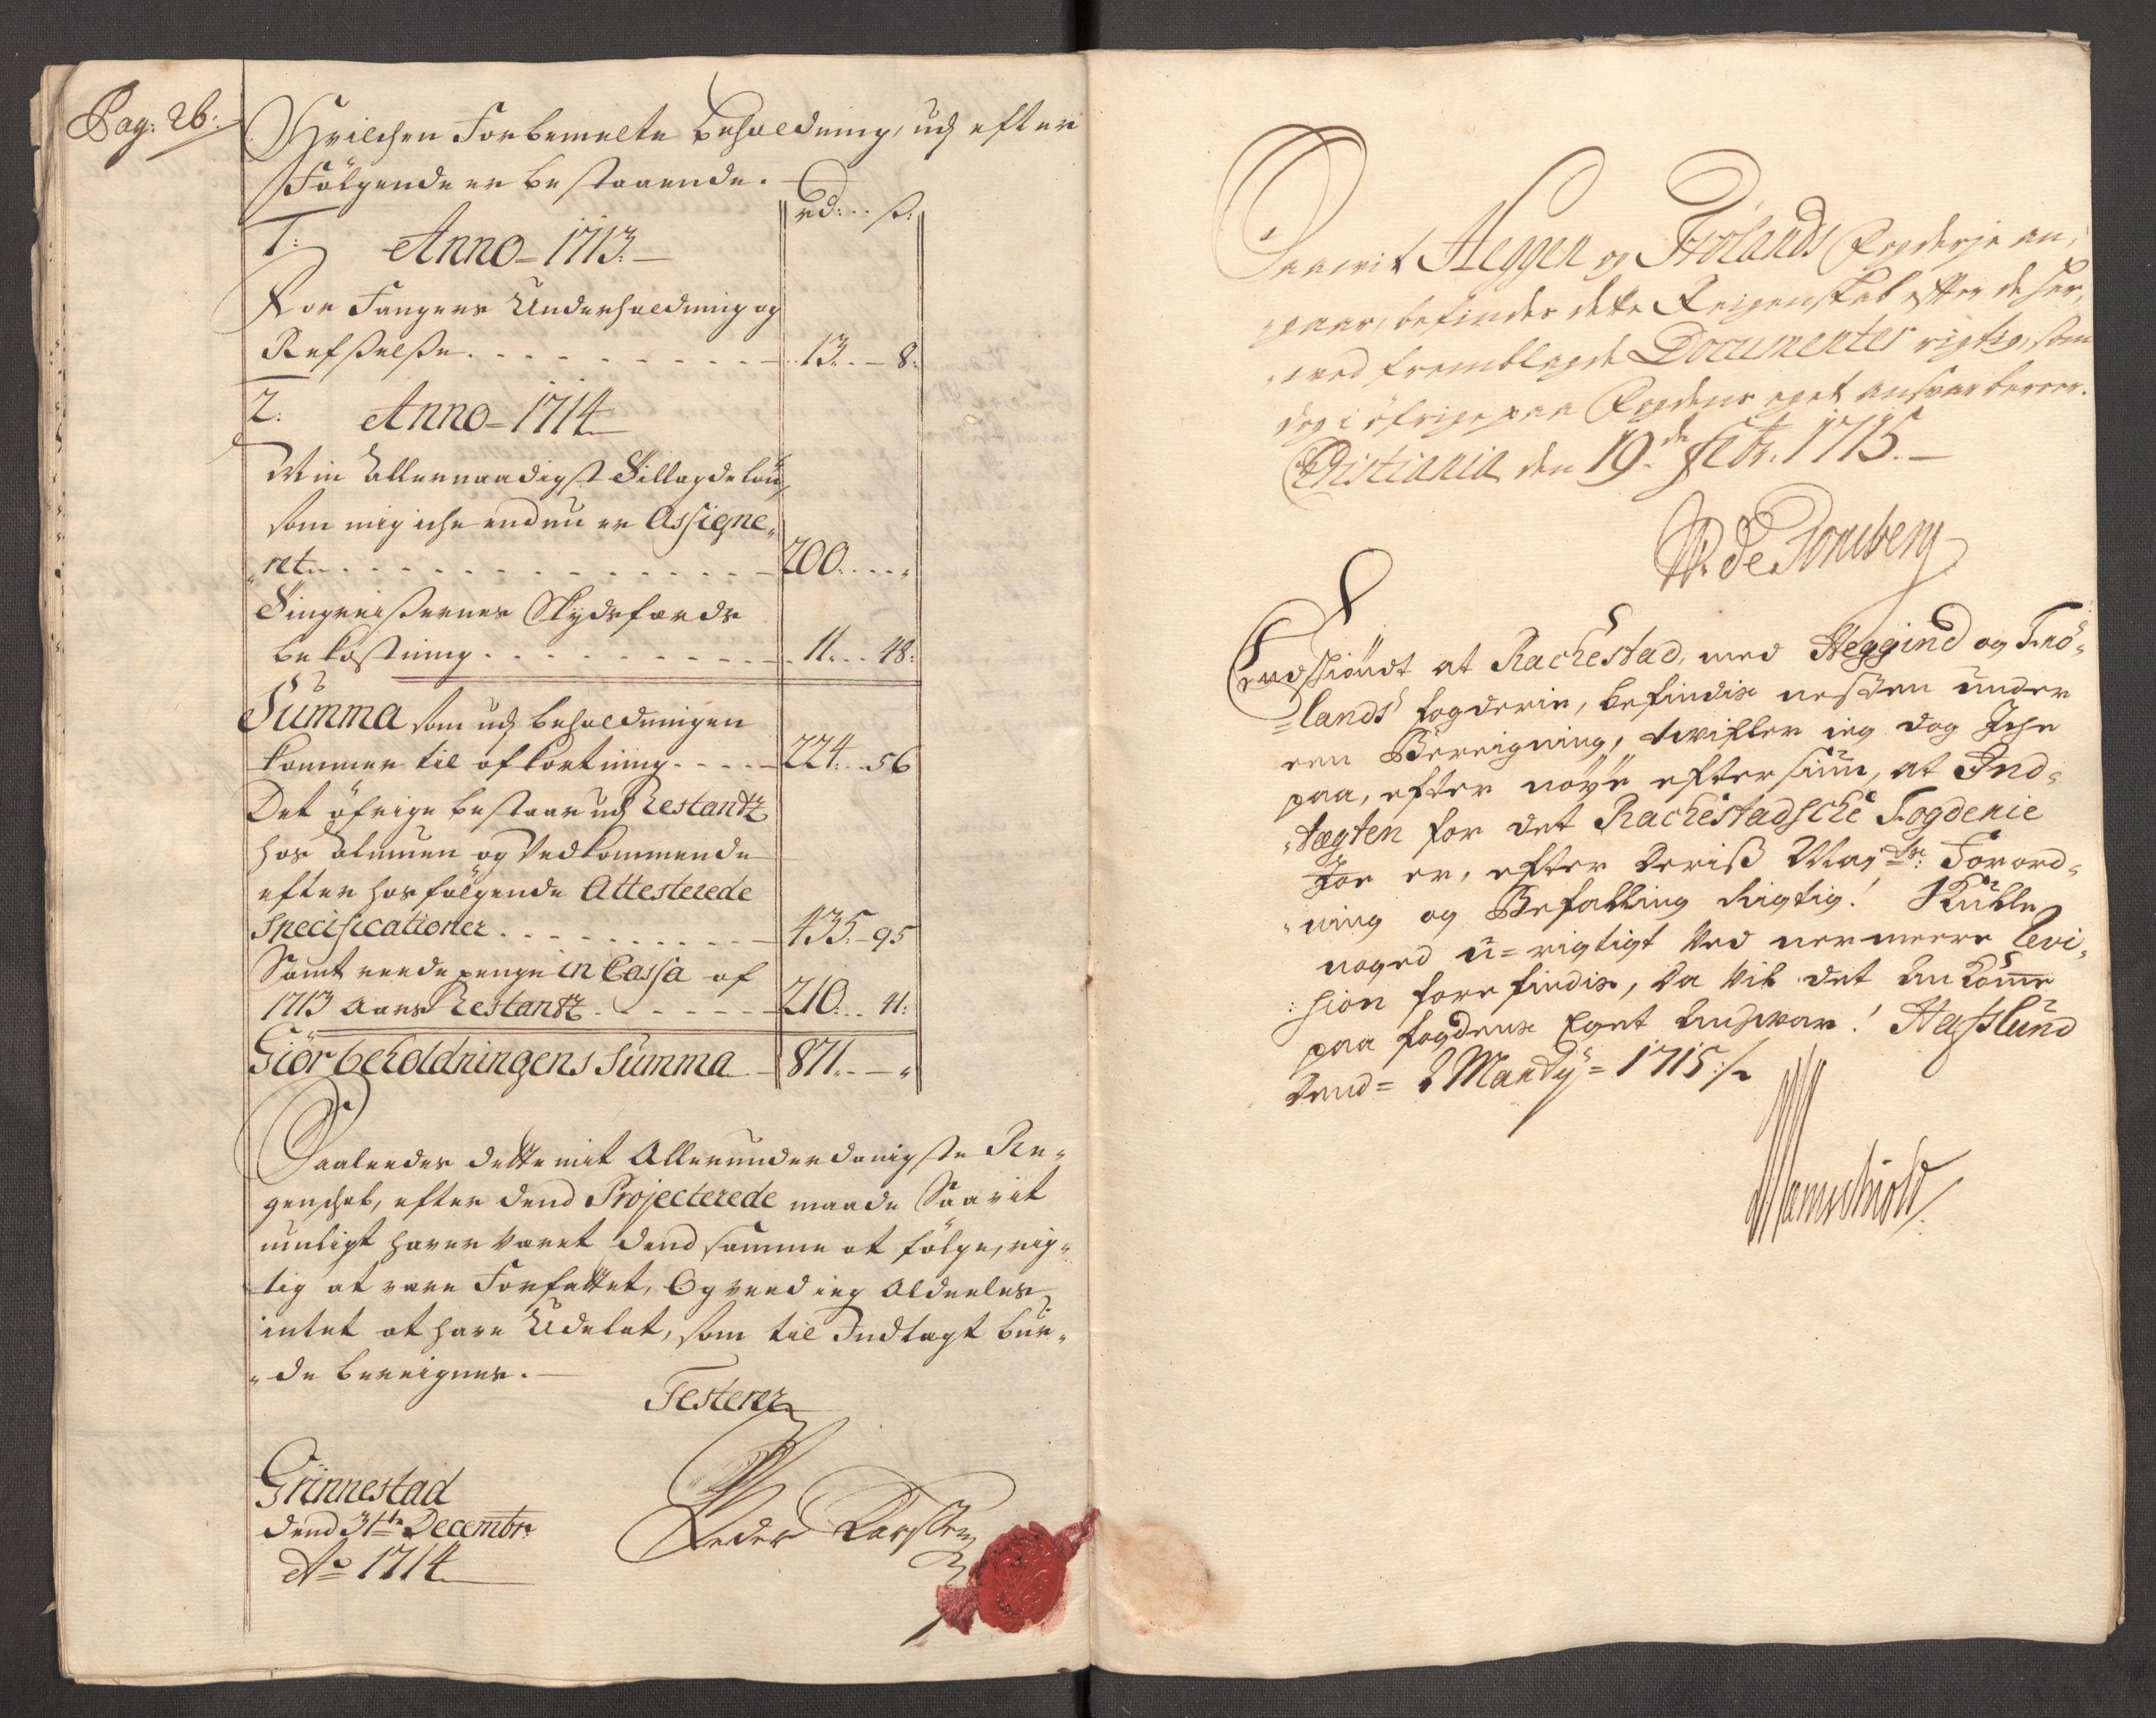 Pag: 26:
Hvilchen Forbemelte Beholdning, udj efter
Følgende er bestaaende.
rd: .. ß:
1: Anno - 1713. -
For Fangers Underholdning og
Refselse . . . . . . . . . 13. - 8:
2: Anno - 1714
Min Allernaadigst Tillagde løn,
som mig iche endnu er Assigne„
„ret. . . . . . . . . . . 200. . . „
Tingreisernes Skydsfærds
bekostning . . . . . . . . 11. . . 48:
Summa som udj beholdningen
kommer til afkortning . . . . 224. . 56
Det øfrige bestaar udj Restantz
hos Almuen og Vedkommende
efter hosfølgende Attesterede
Specificationer . . . . . . . 435. - 95
Samt reede penge in Cassa af
1713 Aars Restantz . . . . . 210. . . 41:
Giør beholdningens Summa - 871. - „
Saaleedes dette mit Allerunderdanigste Re„
genschab, efter dend Projecterede maade Saavit
muligt haver været dend samme at følge, rig„
tig at være Forfattet, Og veed ieg Aldeeles
intet at have Udelat, som til Indtægt bur„
„de bereignes. -
Testerer
Grinnestad
dend 31te Decembr:
Ao 1714
Peder Carssen
Saavit Heggen og Frølands Fogderje an„
„gaar, befindes dette Reigenskab efter de her„
„ved fremblagde Documenter rigtig, som
dog i øfrige paa Fogdens eget ansvar beroer.
Christiania den 19de Febr. 1715. -
de Tonsberg
Endskiøndt at Rachestad, med Heggind og Frö„
„lands fogderie, befindis nesten under
een Bereigning, twifler ieg dog Iche
paa, efter nöye eftersiun, at Ind„
„tægten for det Rachestadsche Fogderie
for er, efter deriß May:ts Forord„
„ning og Befalling Rigtig! Skulle
noged u=rigtigt Ved nermeere Revi„
:sion forefindis, da Vil det Ankomme
paa fogdens Eget Ansvar! Hafslund
dend= 2 Mandÿ= 1715:/